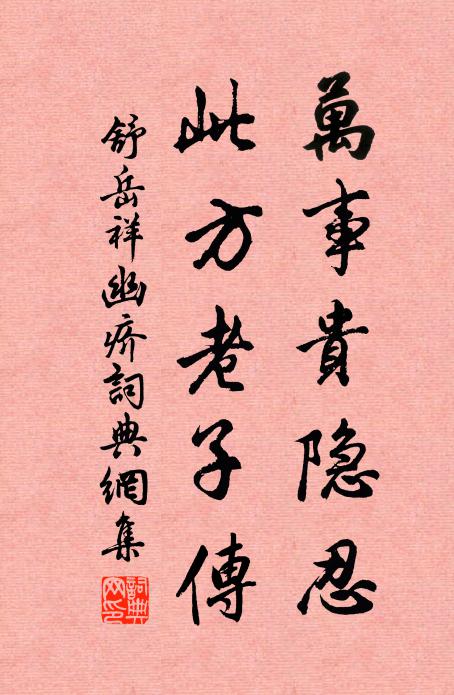 萬事貴隐忍
此方老子傳
舒岳祥幽疥詞典網集
詞典網印